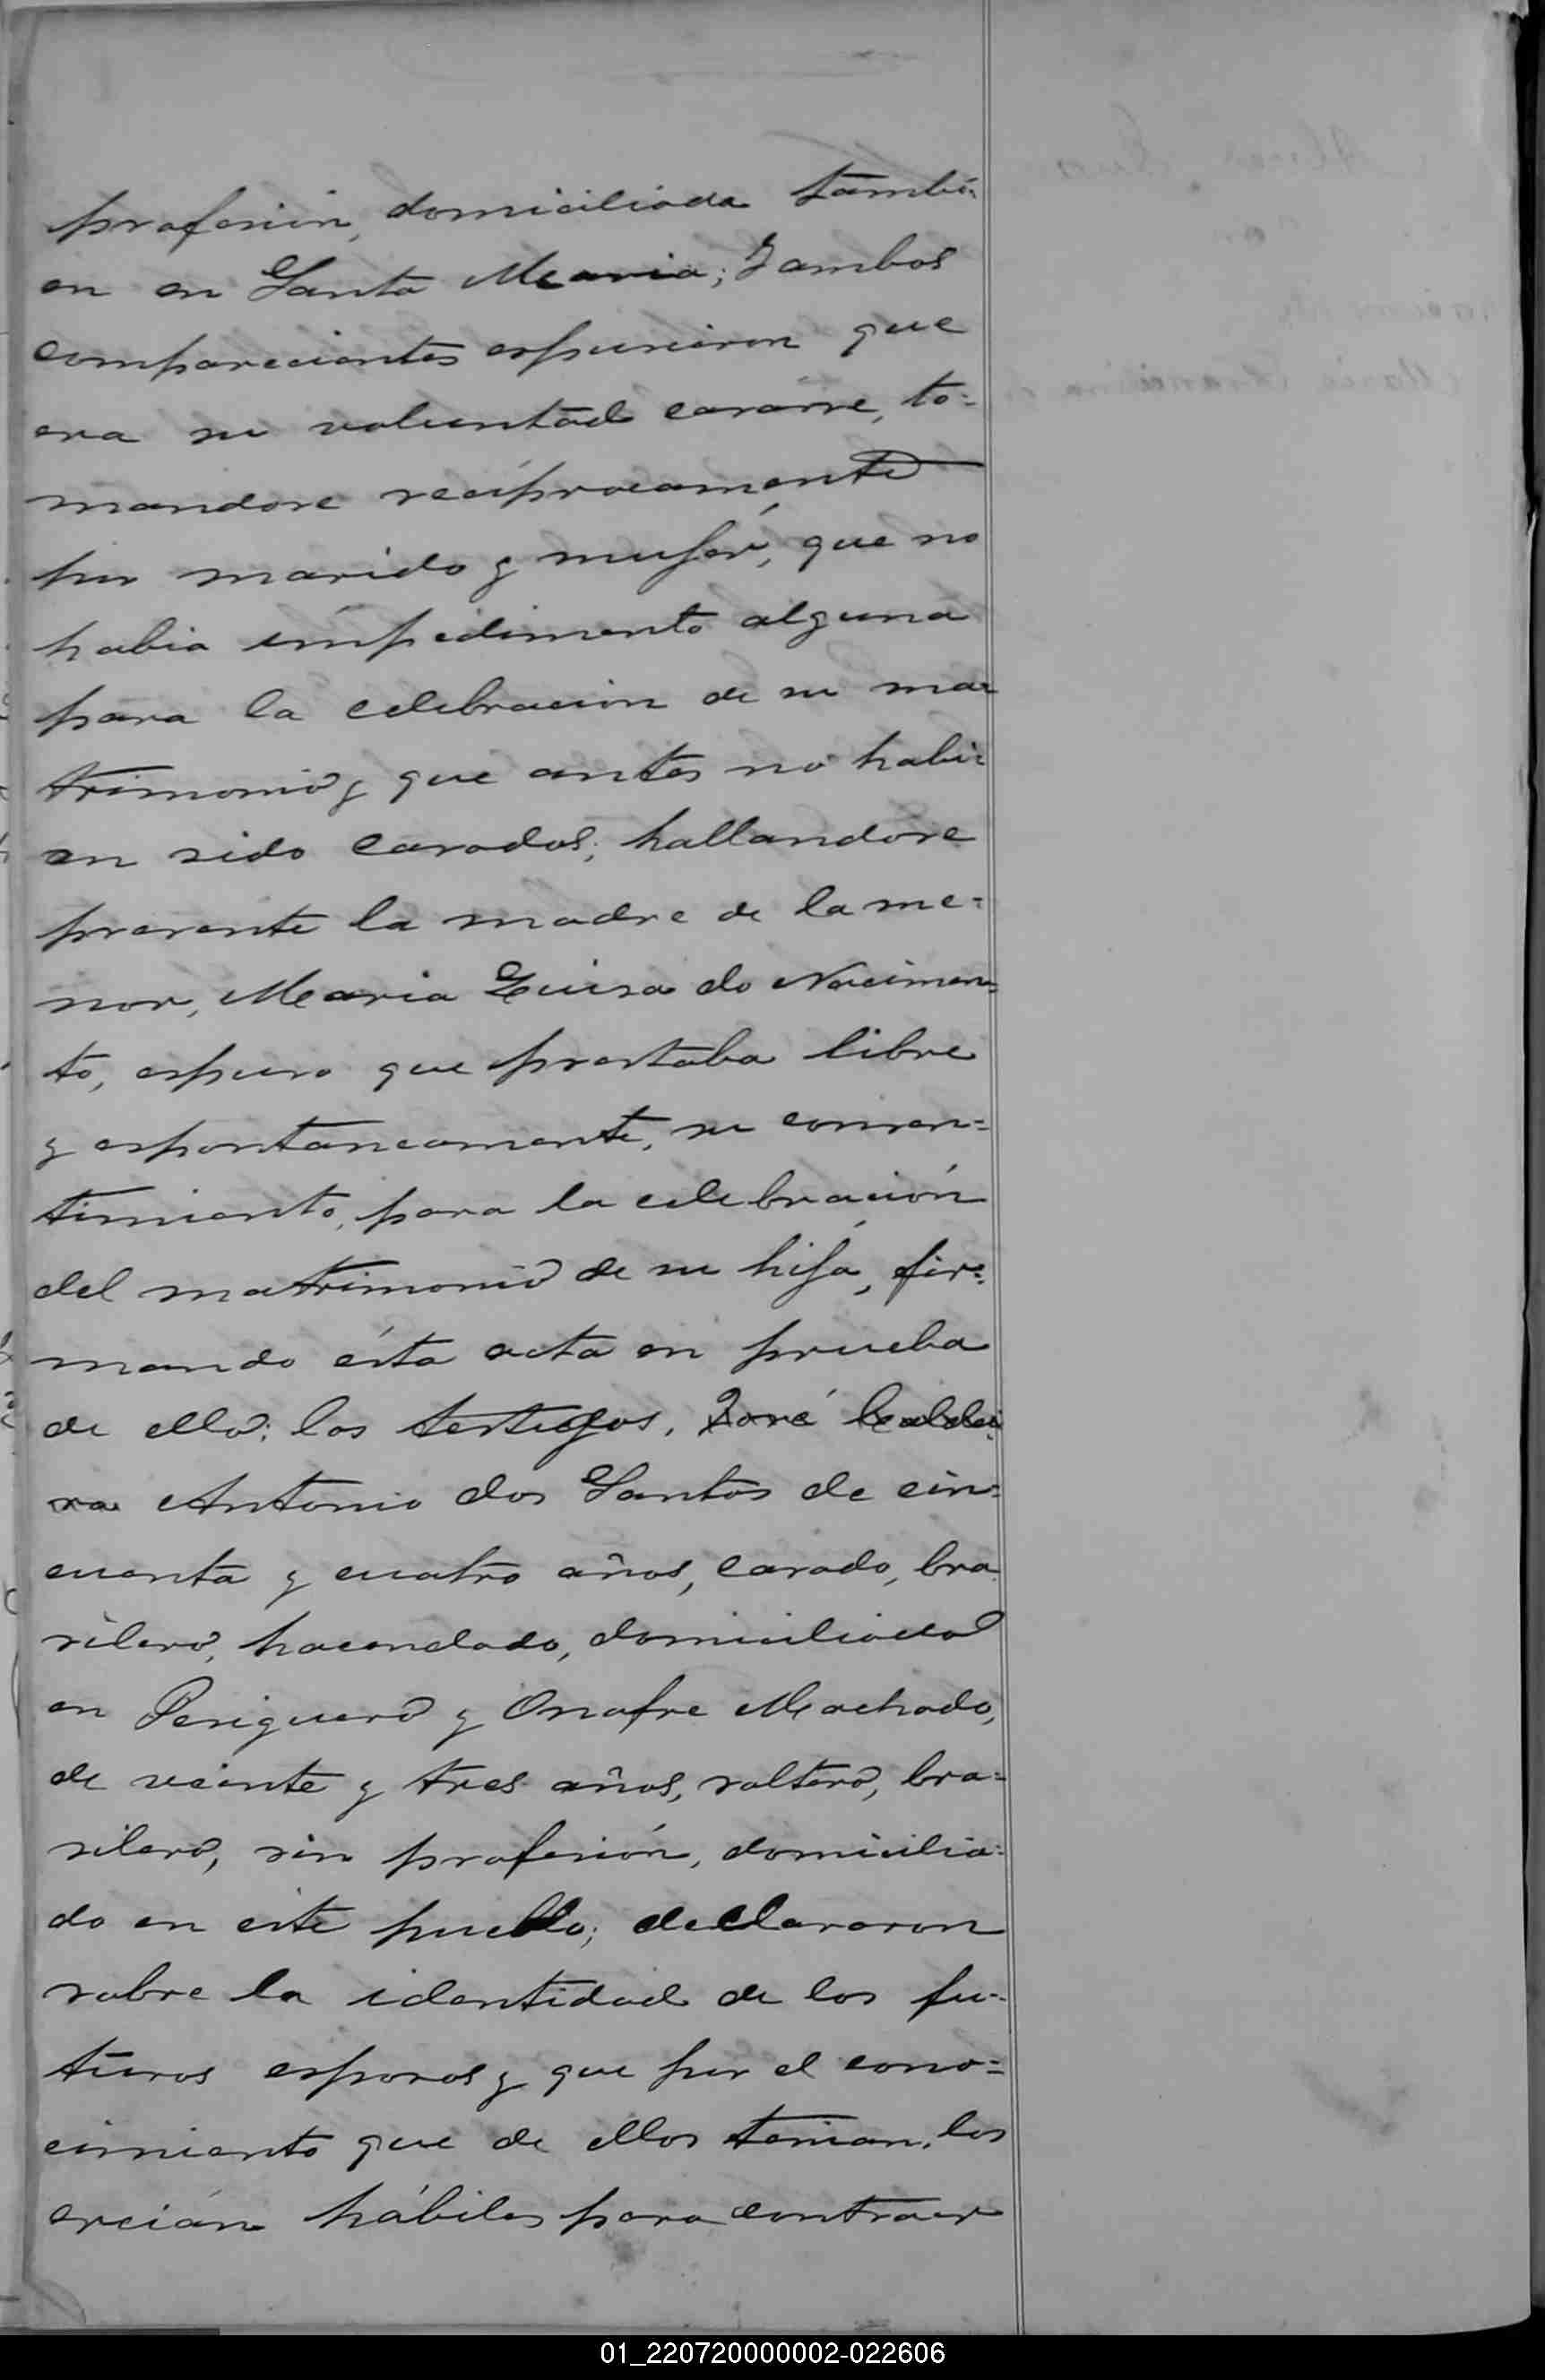 profesion, domiciliada tambi-
en en Santa Maria; I ambos
comparecientes espusieron que
era su voluntad casarse, to=
mandose reciprocamente
por marido y mujer, que no
habia impedimento alguna
para la celebracion de su ma=
trimonio y que antes no habi=
an sido casados; hallandose
presente la madre de la me=
nor, Maria Luisa do Nacimen=
to, espuso que prestaba libre
y espontaneamente, su consen=
timiento, para la celebración
del matrimonio de su hija, fir=
mando ésta acta en prueba
de ello; los testigos, José Caldei=
ra Antonio dos Santos de cin=
cuenta y cuatro años, casado, bra
silero, hacendado, domiciliado
en Periguero y Onofre Machado,
de veinte y tres años, soltero, bra=
silero, sin profesión, domicilia=
do en este pueblo; declararon
sobre la identidad de los fu=
turos esposos y que por el cono=
cimiento que de ellos tenian, los
creián hábiles para contraer
01_220720000002-022606